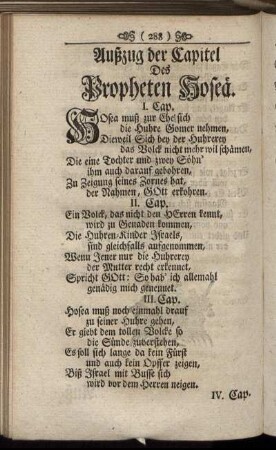 ( 288 )
Außzug der Capitel
Des
Propheten Hoseä.
I. Cap.
HOsea muß zur Ehe sich
die Huhre Gomer nehmen,
Dieweil Sich bey der Huhrerey
das Volck nicht mehr wil schämen,
Die eine Tochter und zwey Söhn'
ihm auch darauf gebohren,
Zu Zeigung seines Zornes hat,
der Nahmen, GOtt erkohren.
II. Cap.
Ein Volck, das nicht den HErren kennt,
wird zu Genaden kommen,
Die Huhren-Kinder Israels,
sind gleichfalls aufgenommen,
Wenn Jener nur die Huhrerey
der Mutter recht erkennet,
Spricht GOtt: So hab' ich allemahl
genädig mich genennet.
III. Cap.
Hosea muß noch einmahl drauf
zu seiner Huhre gehen,
Er giebt dem tollen Volcke so
die Sünde zuverstehen,
Es soll sich lange da kein Fürst
und auch kein Opffer zeigen,
Biß Israel mit Busse sich
wird vor dem Herren neigen.
IV. Cap.